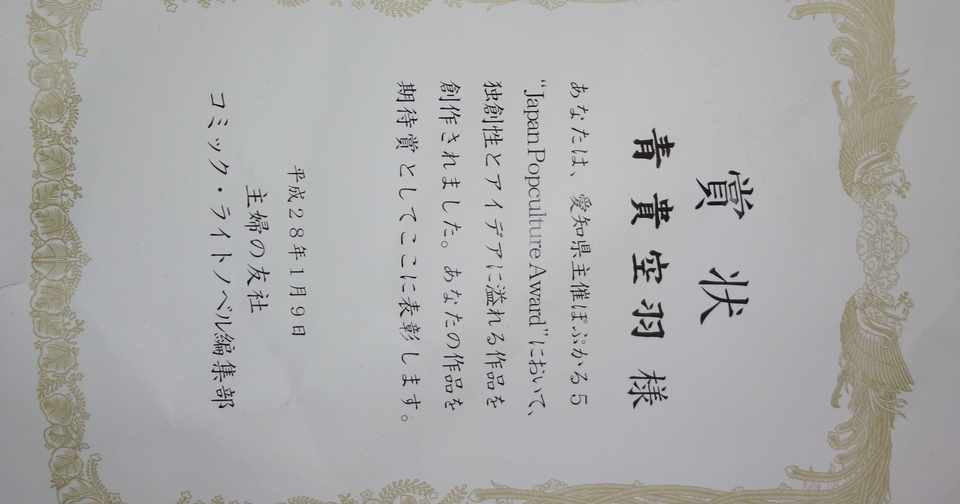 賞状
青貴空羽 様
あなたは、愛知県主催ぽぷかる5
“Japan Popculture Award”において、
独創性とアイデアに溢れる作品を
創作されました。あなたの作品を
期待賞としてここに表彰します。
平成28年1月9日
主婦の友社
コミック・ライトノベル編集部